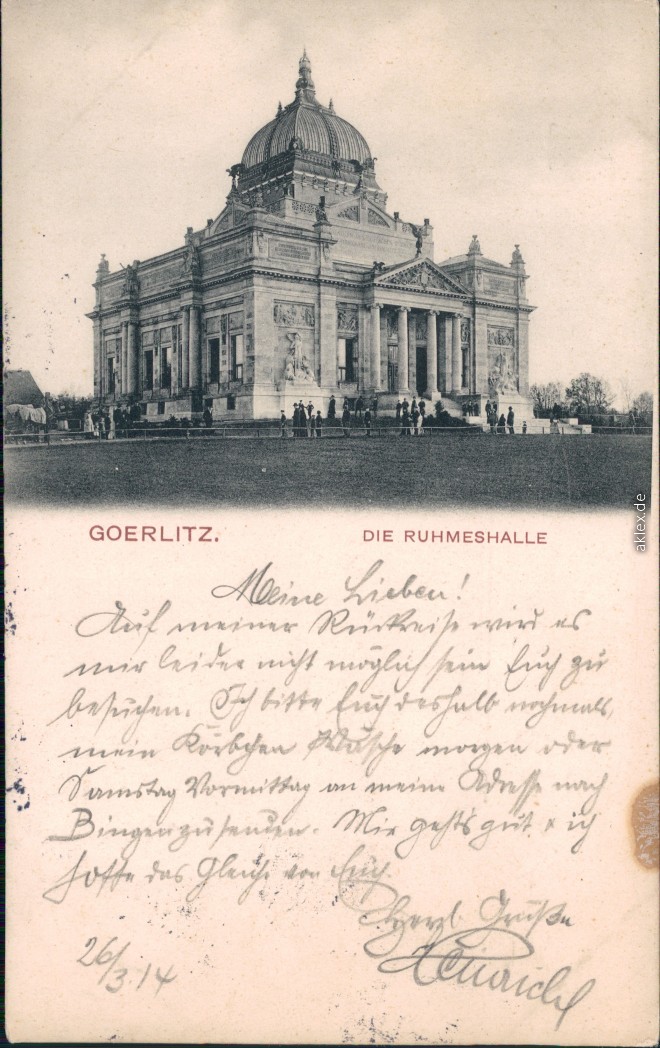 GOERLITZ. DIE RUHMESHALLE
aklex.de
Meine Lieben!
Auf meiner Rückreise wird es
mir leider nicht möglich sein Euch zu
besuchen. Ich bitte Euch deshalb nochmals,
mein Körbchen Wäsche morgen oder
Samstag Vormittag an meine Adresse nach
Bingen zu senden. Mir geht's gut & ich
hoffe das Gleiche von Euch.
Herzl. Grüße
Heinrich
26/3.14